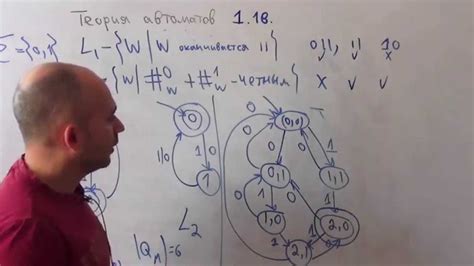 Теория автоматов 1.1в.
Σ={0,1} L₁-{W|W оканчивается 11} 011, 11 10
-{W|#⁰w + #¹w - четным} x v v
0
0 0
1|0 1 0
1
0,0
0 1 1
0 0,1 1,1
0 1
1,0 2,0
1 2,1 1
L₂
|Qм|=6